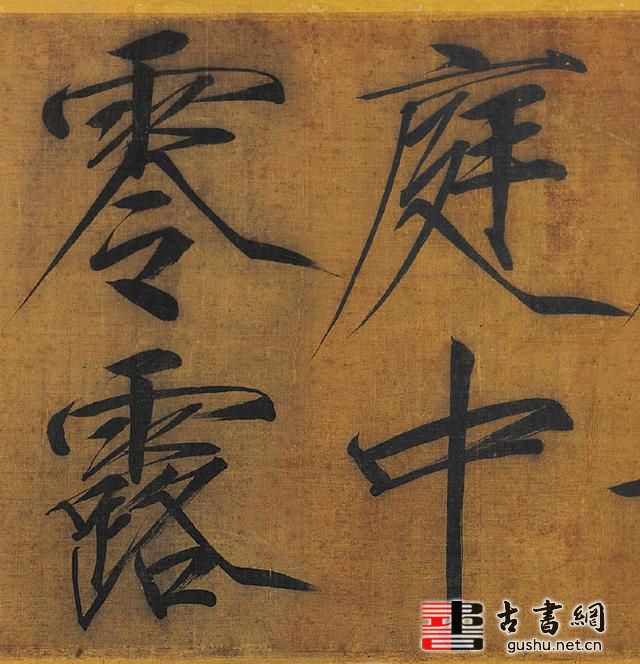 庭中
零露
古書網
gushu.net.cn